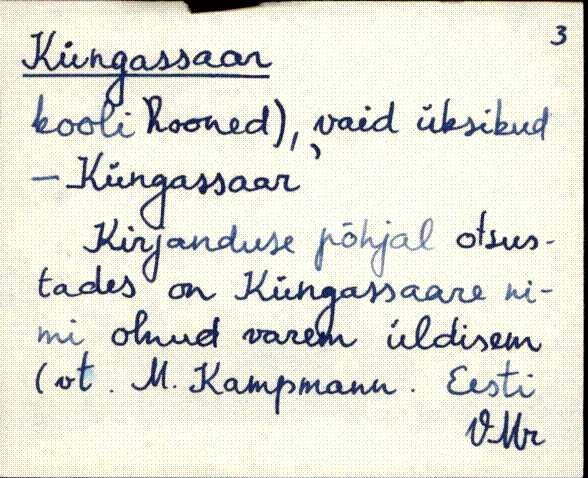 3
Küngassaar
kooli hooned), vaid üksikud
– Küngassaar
Kirjanduse põhjal otsus-
tades on Küngassaare ni-
mi olnud varem üldisem
(vt. M. Kampmann. Eesti
VMr